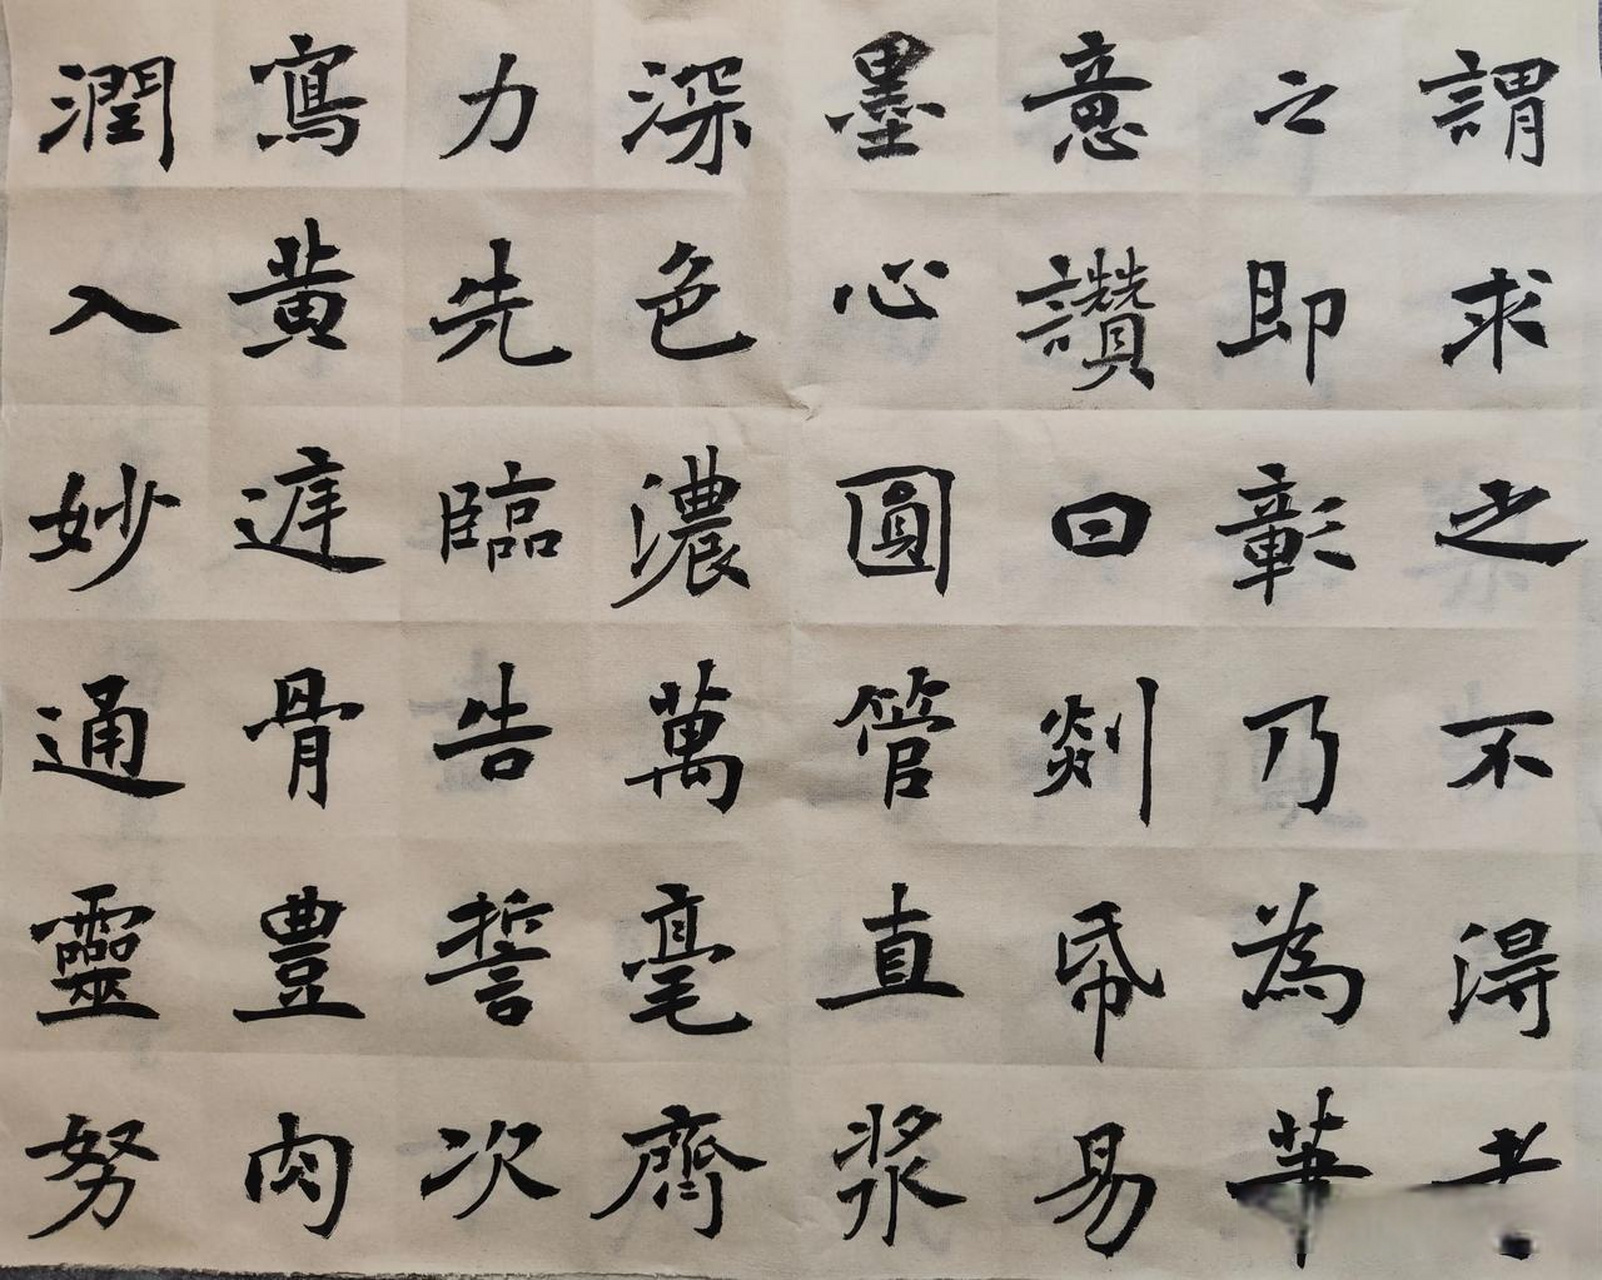 謂求之不淂考
之即彰乃為華
意讚曰剡帋易
墨心圓管直浆
深色濃萬毫齊
力先臨告誓次
寫黄庭骨豊肉
潤入妙通靈努